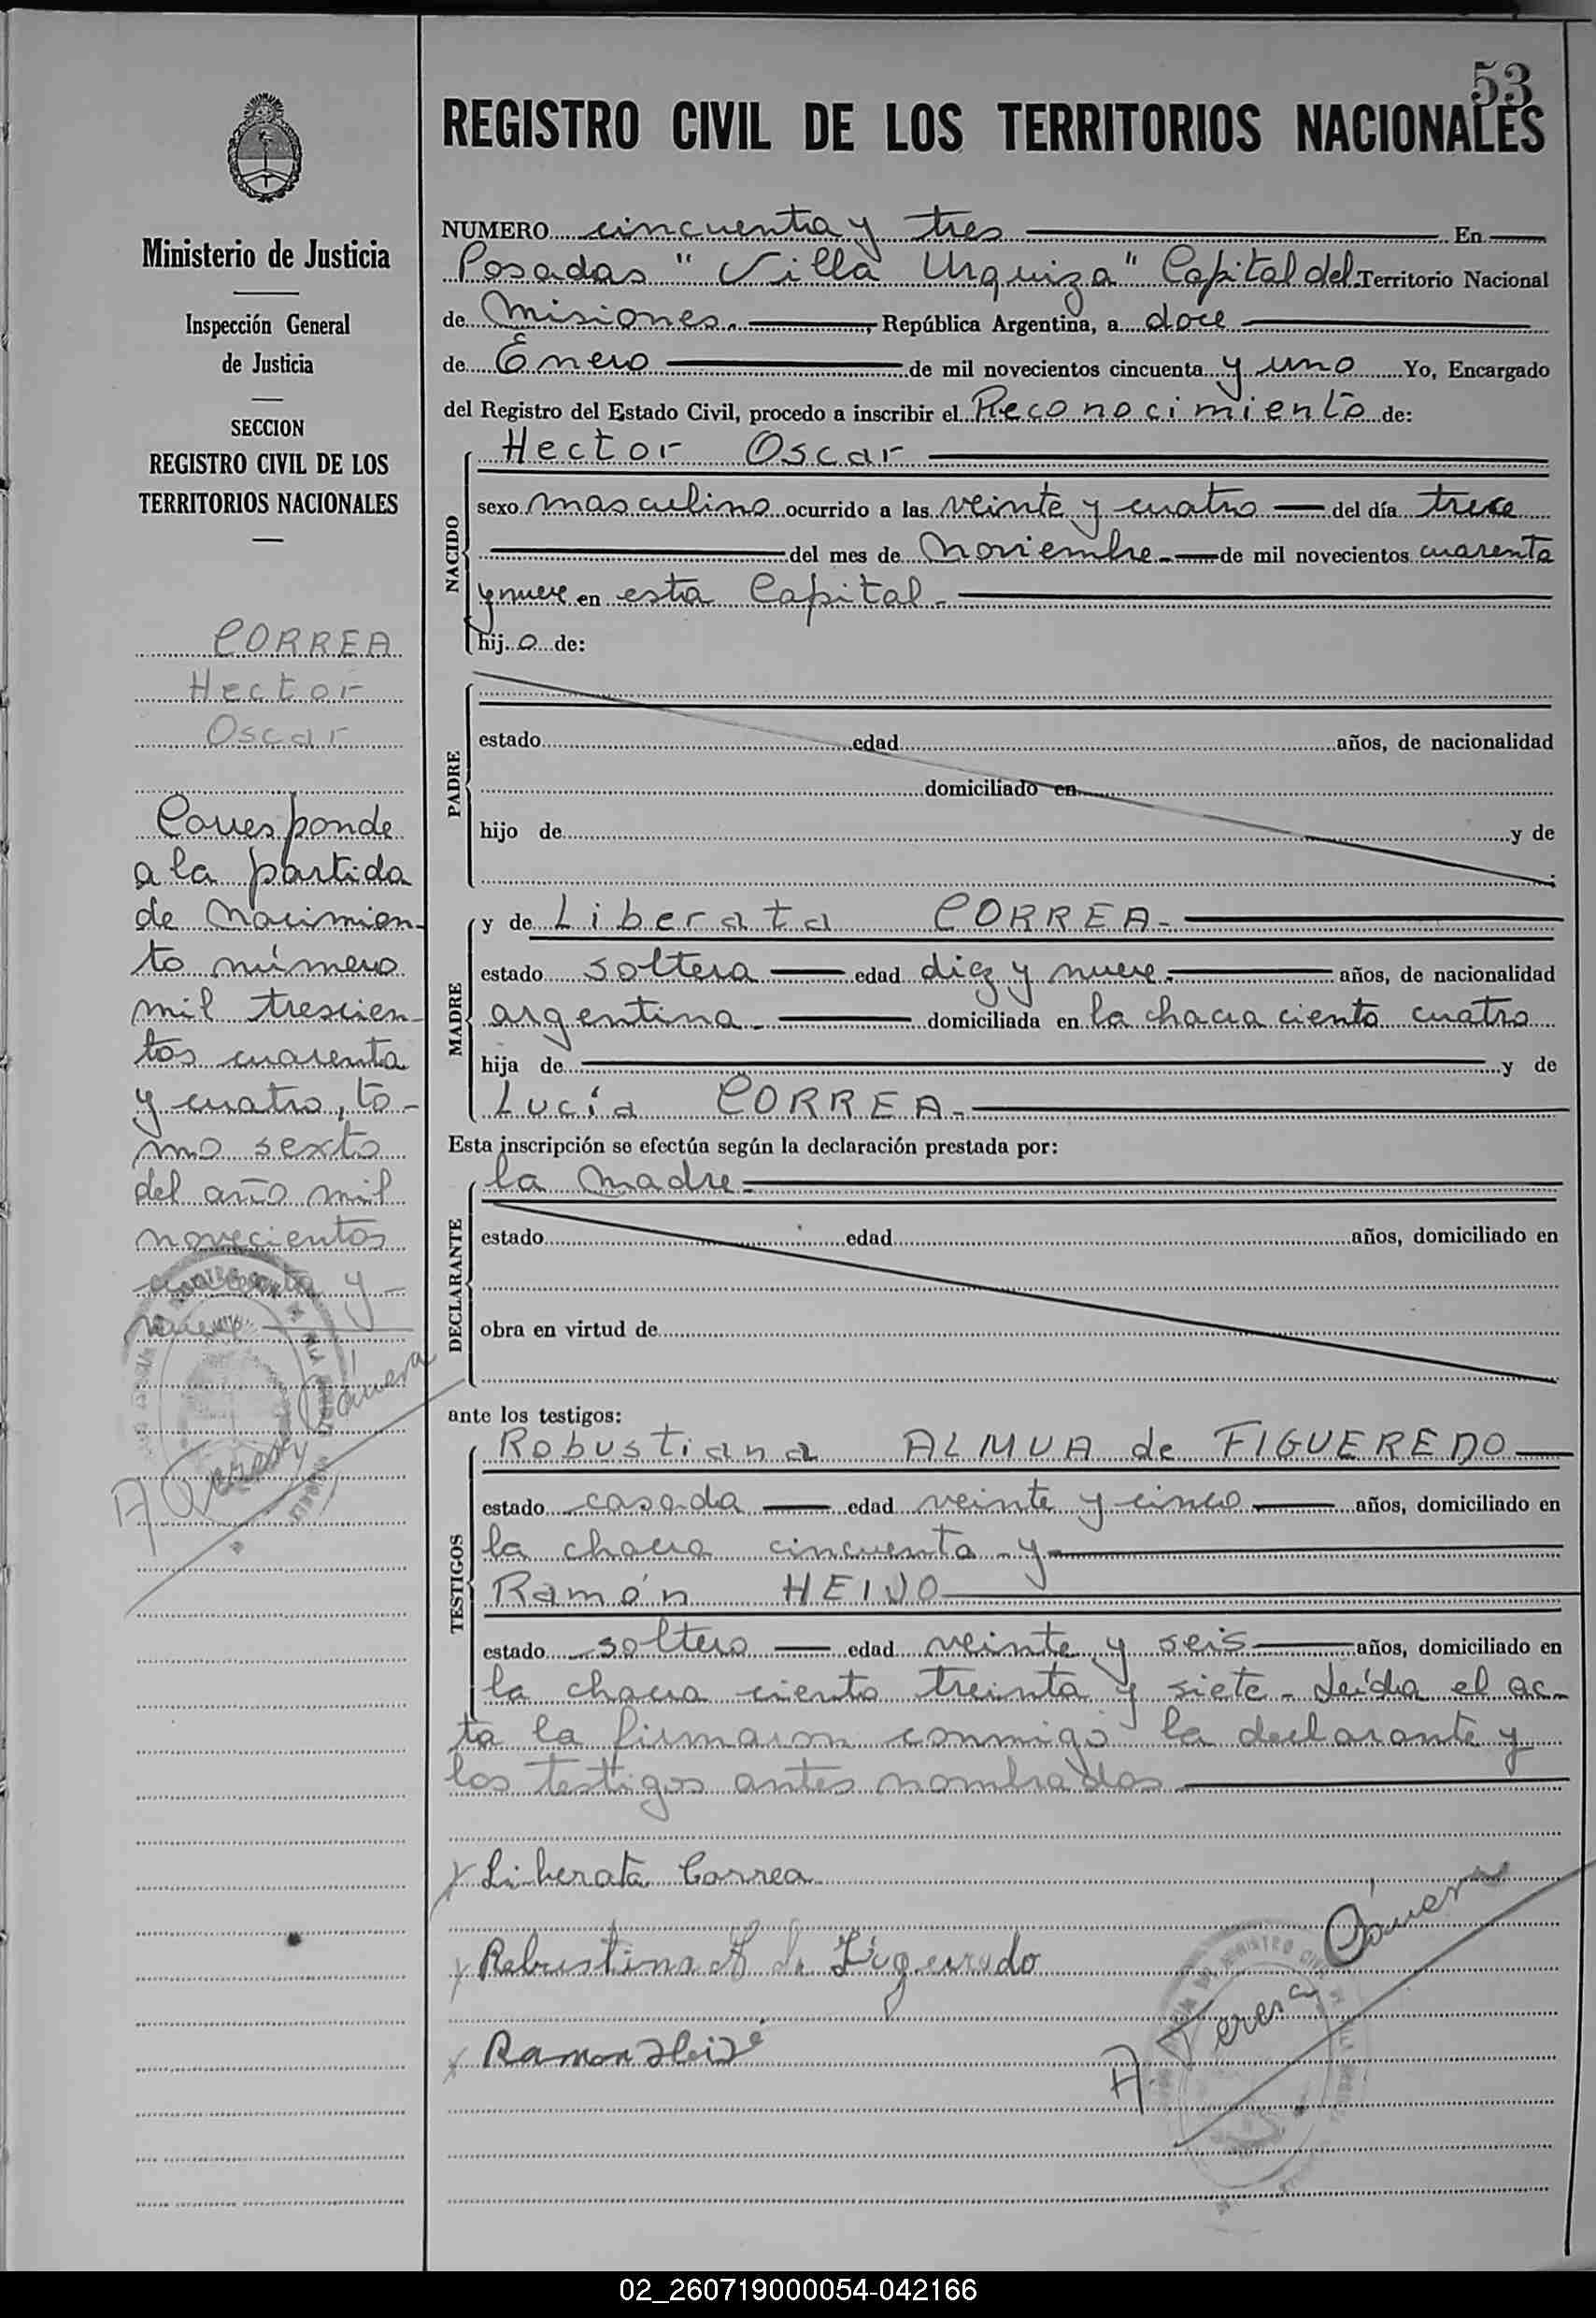 53
REGISTRO CIVIL DE LOS TERRITORIOS NACIONALES
Ministerio de Justicia
Inspección General
de Justicia
SECCION
REGISTRO CIVIL DE LOS
TERRITORIOS NACIONALES
CORREA
Hector
Oscar
Corresponde
a la partida
de Nacimien-
to número
mil trescien-
tos cuarenta
y cuatro, to-
mo sexto
del año mil
novecientos
cuarenta y
nueve
NUMERO cincuenta y tres En
Posadas "Villa Urquiza" Capital del Territorio Nacional
de Misiones. República Argentina, a doce
de Enero de mil novecientos cincuenta y uno Yo, Encargado
del Registro del Estado Civil, procedo a inscribir el Reconocimiento de:
NACIDO
Hector Oscar
sexo masculino ocurrido a las veinte y cuatro del día trece
del mes de Noviembre de mil novecientos cuarenta
y nueve en esta Capital
hij o de:
PADRE
estado edad años, de nacionalidad
domiciliado en
hijo de y de
MADRE
y de Liberata CORREA
estado soltera edad diez y nueve años, de nacionalidad
argentina domiciliada en la chacra ciento cuatro
hija de y de
Lucía CORREA
Esta inscripción se efectúa según la declaración prestada por:
DECLARANTE
la madre
estado edad años, domiciliado en
obra en virtud de
ante los testigos:
TESTIGOS
Robustiana ALMUA de FIGUEREDO
estado casada edad veinte y cinco años, domiciliado en
la chacra cincuenta y
Ramón HEIJO
estado soltero edad veinte y seis años, domiciliado en
la chacra ciento treinta y siete - Leída el ac-
ta la firmaron conmigo la declarante y
los testigos antes nombrados
Liberata Correa
A. Teresa
02_260719000054-042166